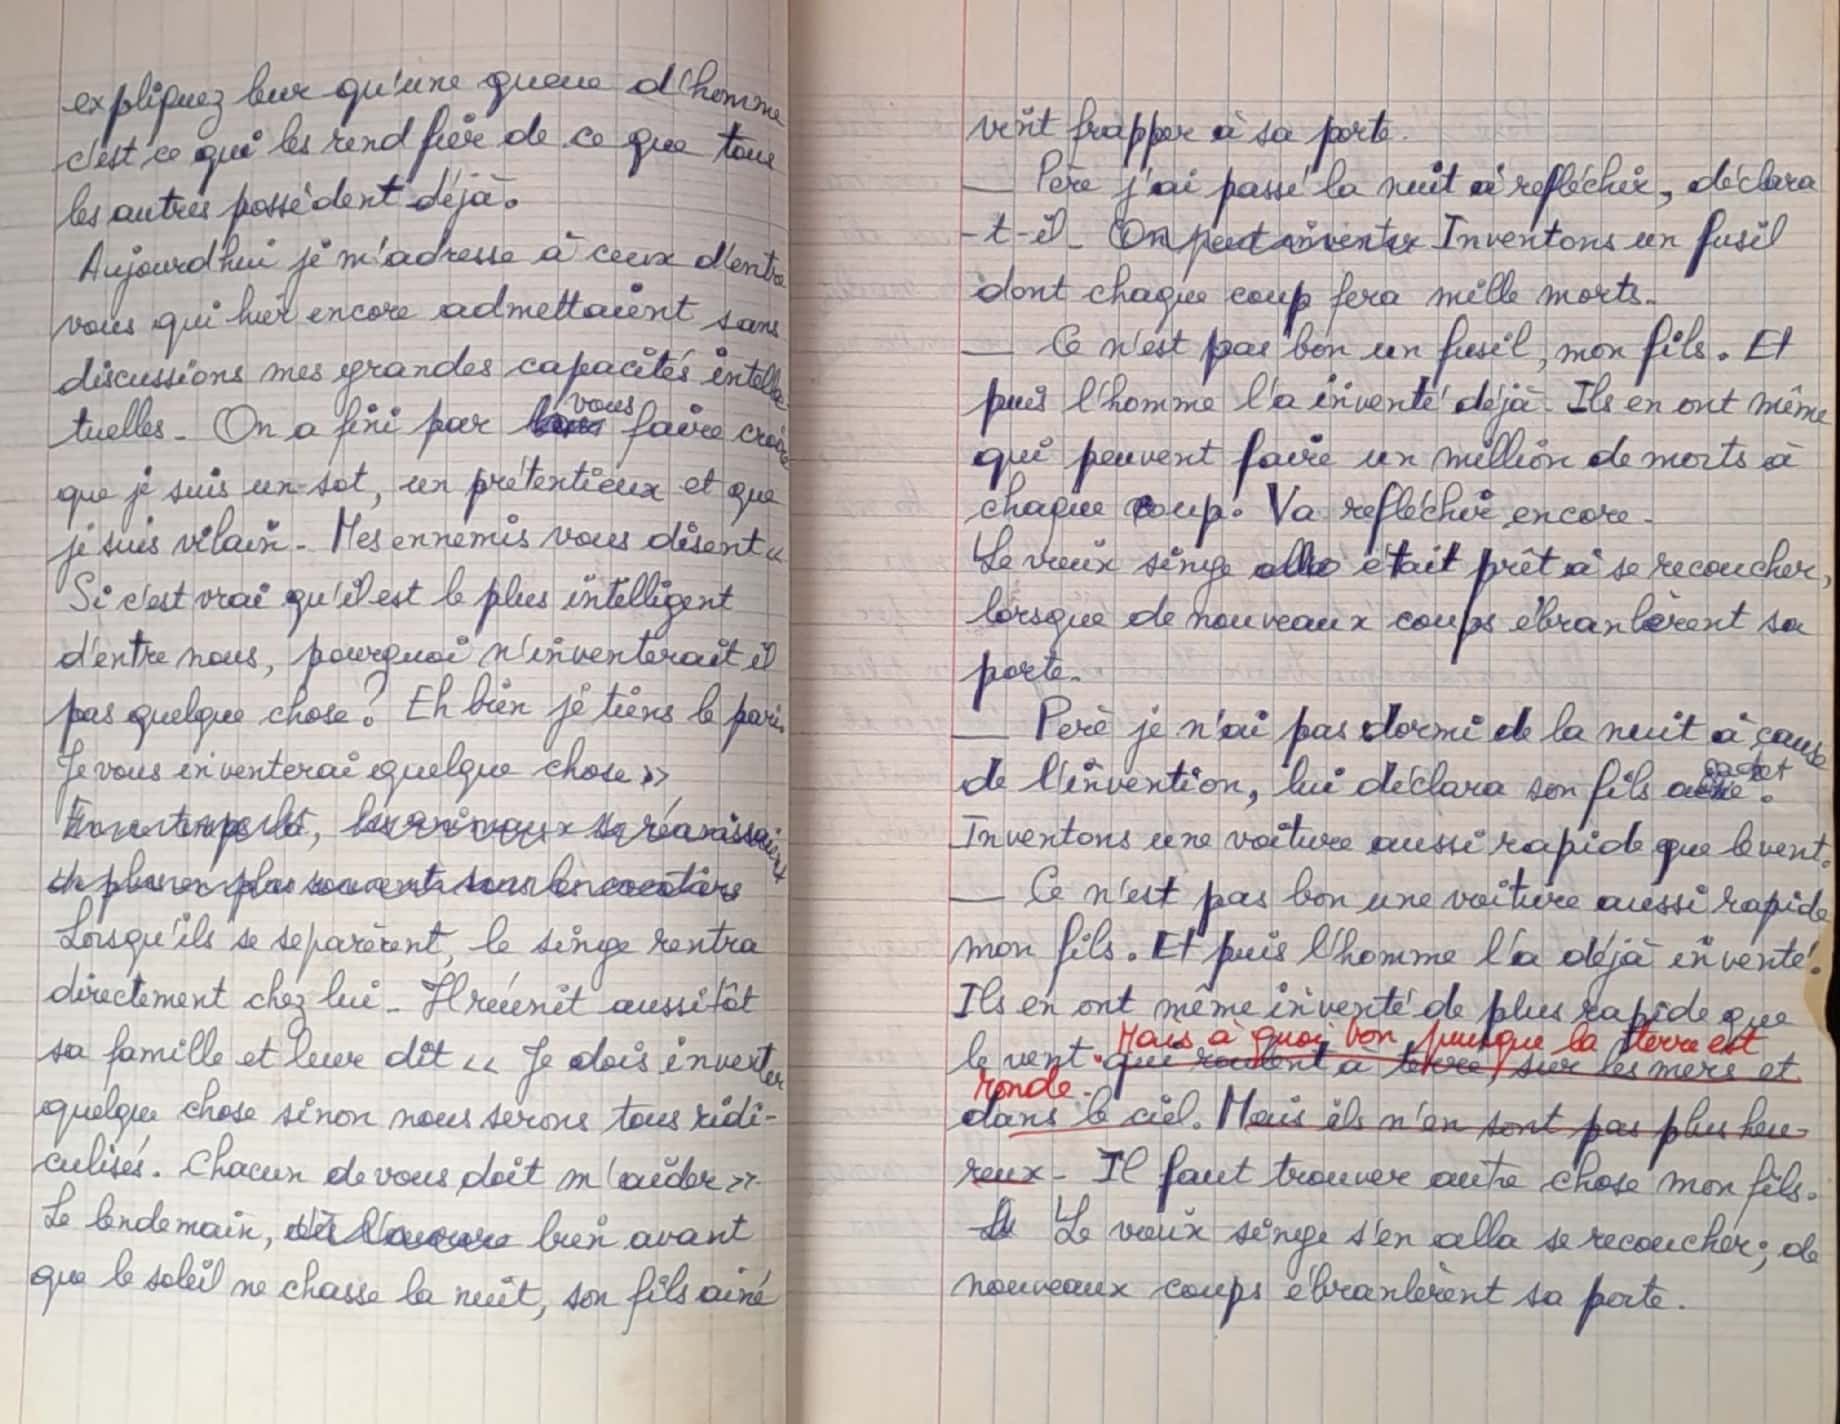 expliquez leur qu'une queue d'homme
c'est ce qui les rend fier de ce que tous
les autres possèdent déjà.
Aujourd'hui je m'adresse à ceux d'entre
vous qui hier encore admettaient sans
discussions mes grandes capacités intellec
tuelles. On a fini par vous faire croire
que je suis un sot, un prétentieux et que
je suis vilain. Mes ennemis vous disent «
Si c'est vrai qu'il est le plus intelligent
d'entre nous, pourquoi n'inventerait il
pas quelque chose ? Eh bien je tiens le pari.
Je vous inventerai quelque chose »
En ce temps là, les animaux se réunissaient
de plus en plus souvent sous les cocotiers
Lorsqu'ils se separèrent, le singe rentra
directement chez lui. Il réunit aussitôt
sa famille et leur dit « Je dois inventer
quelque chose sinon nous serons tous ridi-
culisés. Chacun de vous doit m'aider ».
Le lendemain, dès l'aurore bien avant
que le soleil ne chasse la nuit, son fils ainé
vint frapper à sa porte.
— Père j'ai passé la nuit à reflechir, déclara
-t-il. On peut inventer Inventons un fusil
dont chaque coup fera mille morts.
— Ce n'est pas bon un fusil, mon fils. Et
puis l'homme l'a inventé déjà. Ils en ont même
qui peuvent faire un million de morts à
chaque coup. Va reflechir encore.
Le vieux singe était prêt à se recoucher,
lorsque de nouveaux coups ébranlèrent sa
porte.
— Père je n'ai pas dormi de la nuit à cause
de l'invention, lui déclara son fils cadet.
Inventons une voiture aussi rapide que le vent.
— Ce n'est pas bon une voiture aussi rapide
mon fils. Et puis l'homme l'a déjà inventé.
Ils en ont même inventé de plus rapide que
Mais à quoi bon puisque la terre est
le vent. qui roulent à terre, sur les mers et
ronde.
dans le ciel. Mais ils n'en sont pas plus heu-
reux. Il faut trouver autre chose mon fils.
Le Le vieux singe s'en alla se recoucher ; de
nouveaux coups ébranlèrent sa porte.